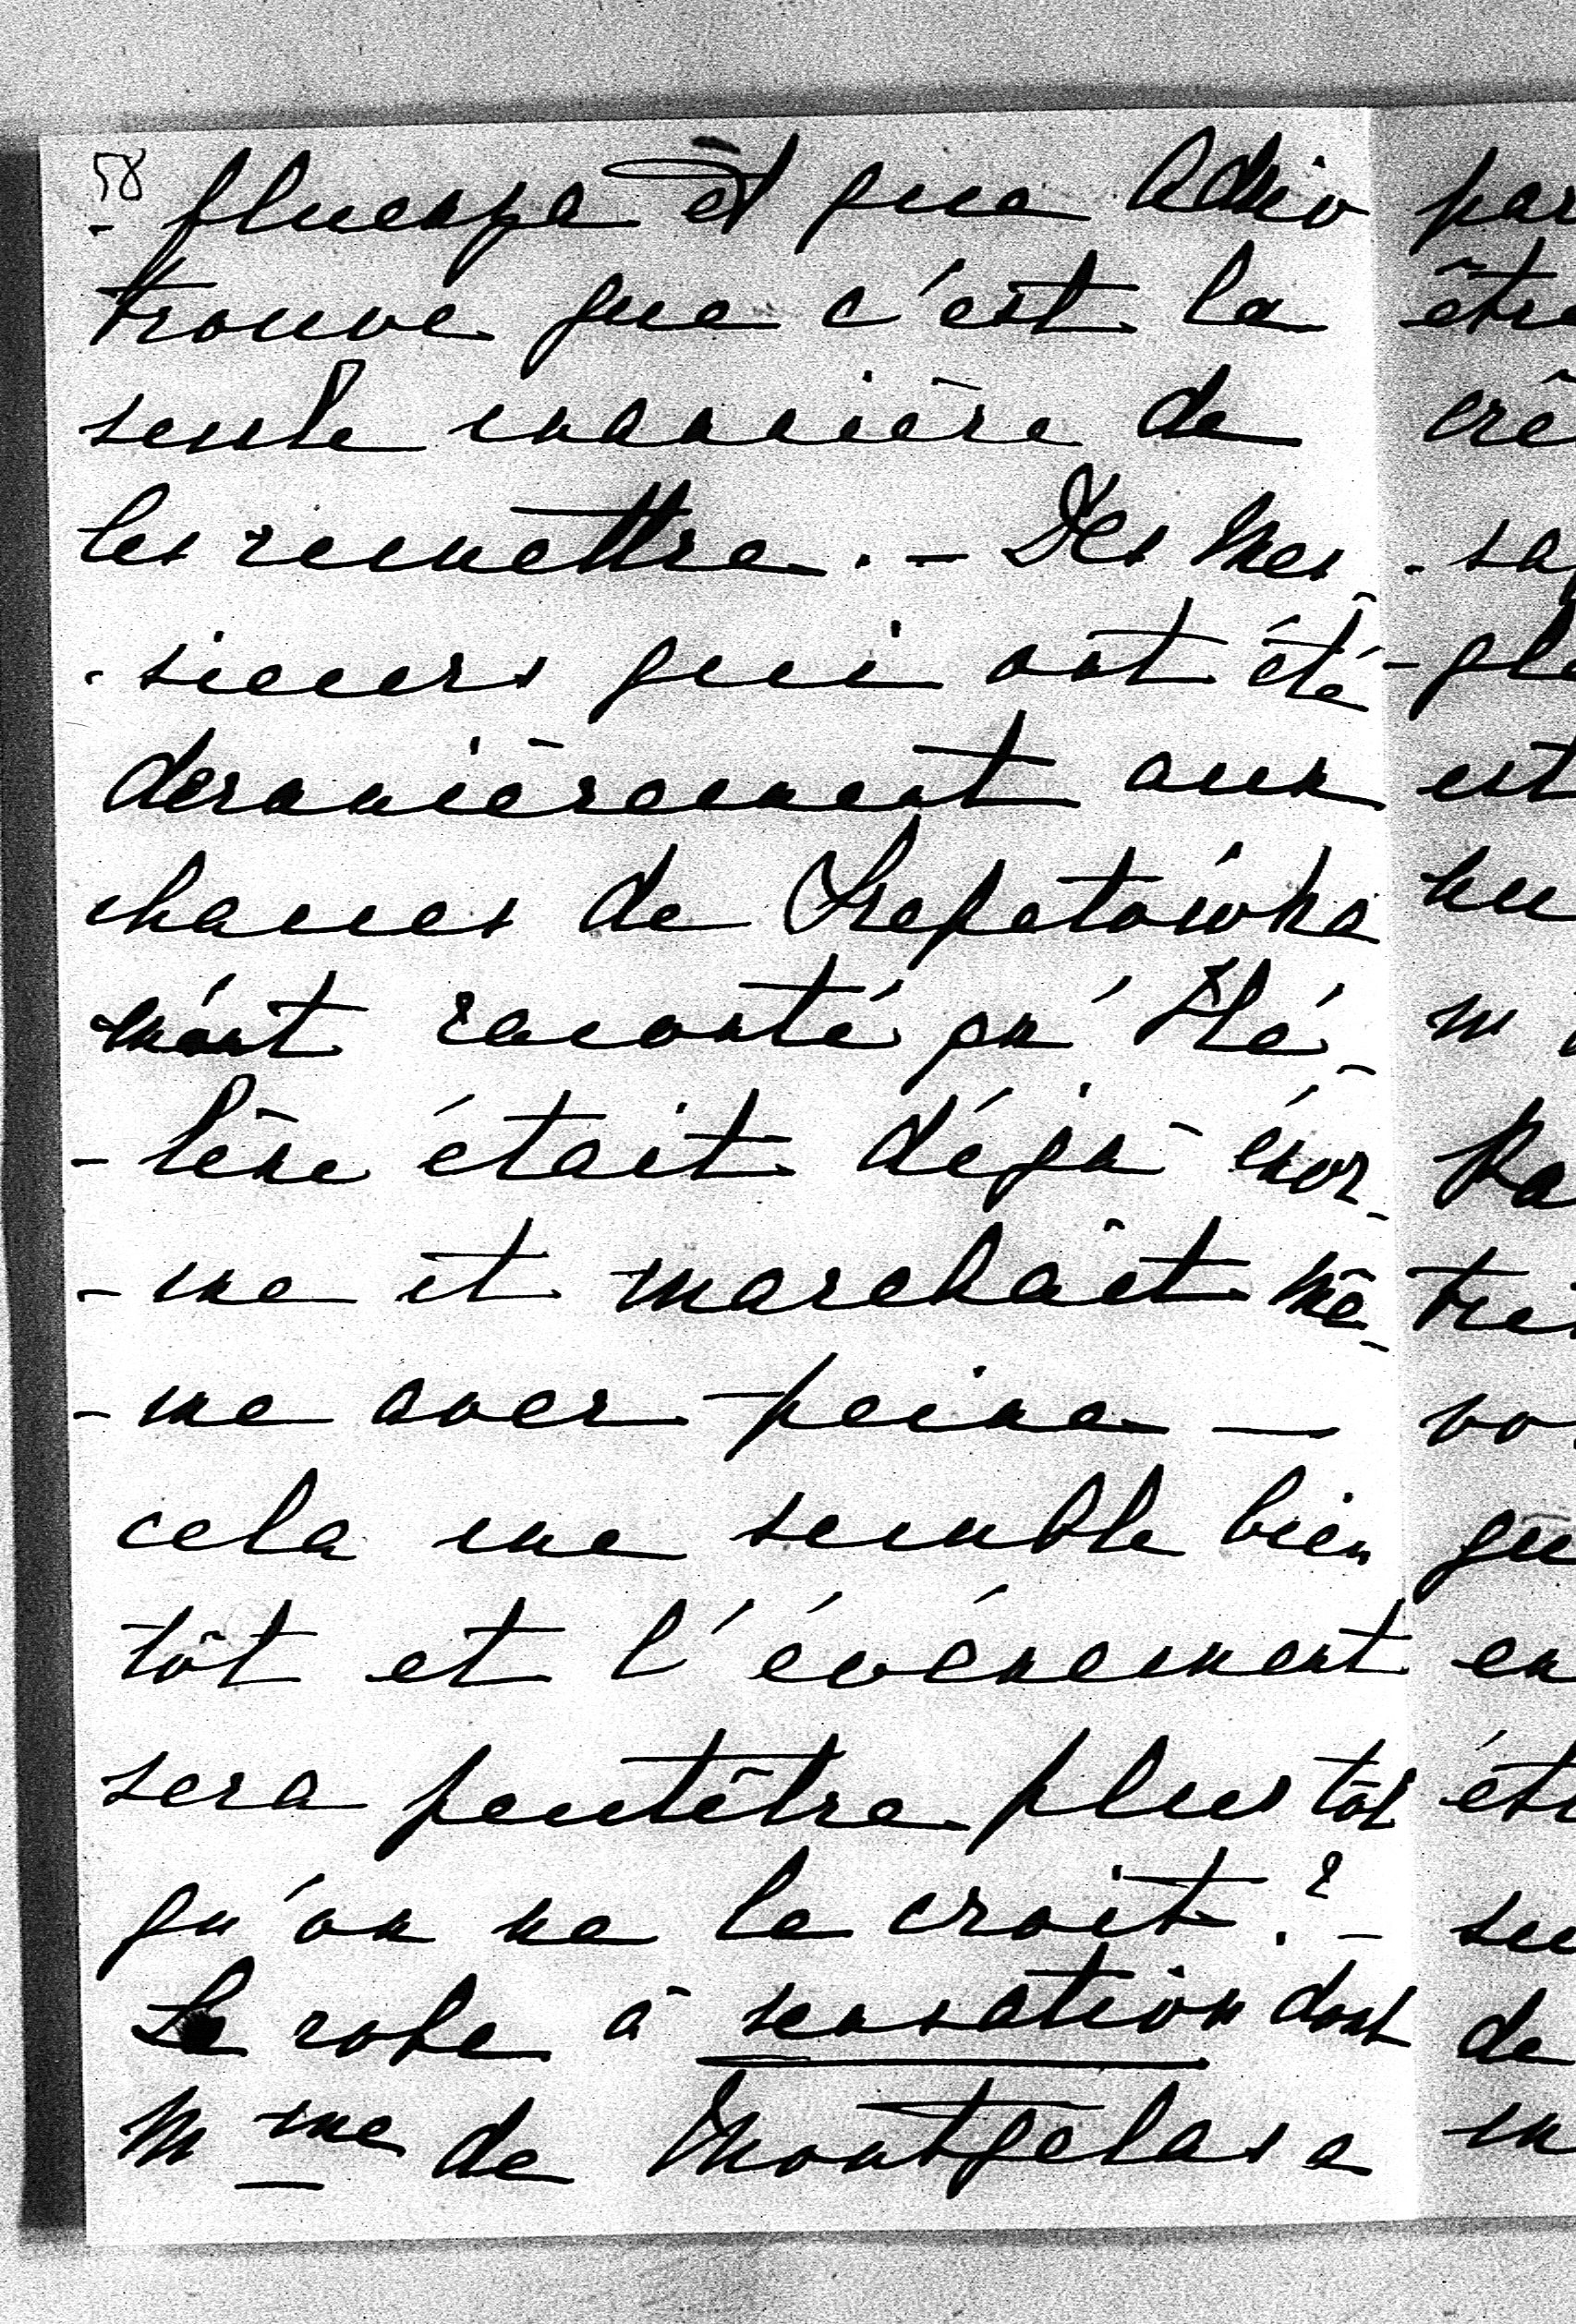 58
-fluenza et que Adzio
trouve que c'est la
seule manière de
les remettre. - Des Mes
-sieurs qui ont été
dernièrement aux
chasses de Szepetówka
m'ont raconté qu'Hé-
-lène était déjà énor-
-me et marchait mê-
-me avec peine —
cela me semble bien
tôt et l'événement
sera peutêtre plus tôt
qu'on ne le croit? -
La robe à sensation dont
Mme de Montgelas a